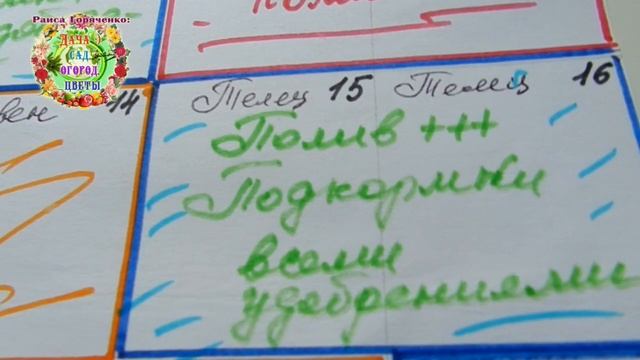 Раиса Горяченко:
ДАЧА
САД
ОГОРОД
ЦВЕТЫ
14
Телец 15 Телец 16
Полив +++
Подкормки
всеми
удобрениями